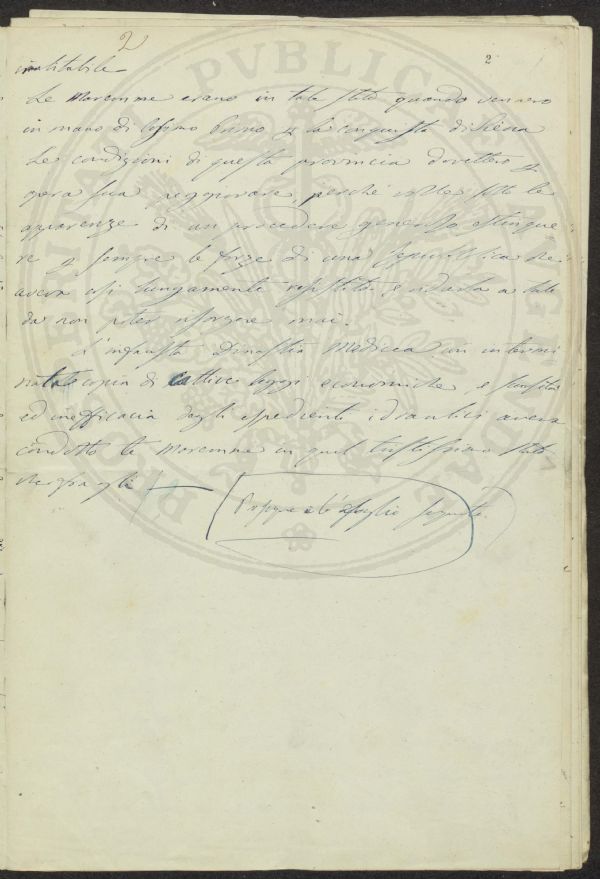 2
2
inabitabile
Le Maremme erano in tale stato quando vennero
in mano di Cosimo Primo p la conquista di Siena
Le condizioni di questa provincia dovettero p
opera sua peggiorare, perché volle sotto le
apparenze di un procedere generoso estingue
re p sempre le forze di una Repubblica che
aveva così lungamente resistito, e ridurla a stato
da non poter risorgere mai.
L'infausta Dinastia Medicea con intermi
nata copia di cattive leggi economiche e
ed inefficacia degli espedienti idraulici aveva
condotto le Maremme in quel tristissimo stato
che gia gli
foglio seguente.
PVBLIC